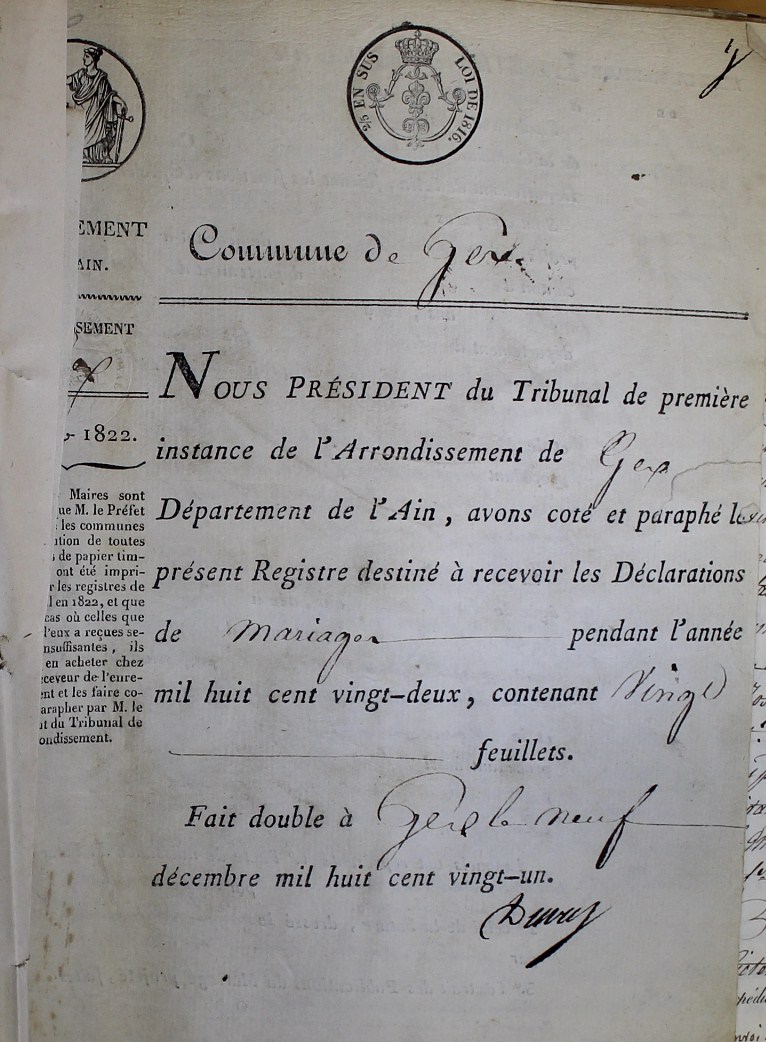 2/5 EN SUS
LOI DE 1816.
EMENT
AIN.
SEMENT
1822.
Maires sont
ue M. le Préfet
les communes
tion de toutes
de papier tim-
ont été impri-
r les registres de
l en 1822, et que
cas où celles que
l'eux a reçues se-
nsuffisantes, ils
en acheter chez
eceveur de l'enre-
ent et les faire co-
arapher par M. le
it du Tribunal de
ondissement.
Commune de Gex
NOUS PRÉSIDENT du Tribunal de première
instance de l'Arrondissement de Gex
Département de l'Ain, avons coté et paraphé le
présent Registre destiné à recevoir les Déclarations
de Mariages pendant l'année
mil huit cent vingt-deux, contenant Vingt
feuillets.
Fait double à Gex le neuf
décembre mil huit cent vingt-un.